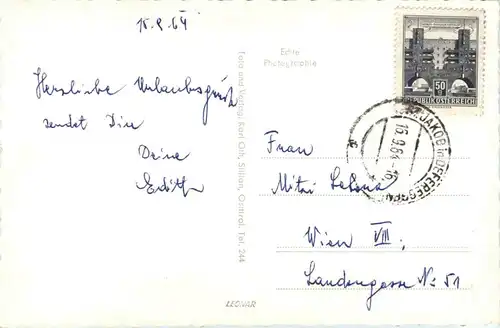 15.9.64
Herzliche Urlaubsgrüße
sendet Dir
Deine
Edith
Foto und Verlag: Karl Gih, Sillian, Osttirol. Tel. 244
Echte
Photographie
50
REPUBLIK ÖSTERREICH
ST. JAKOB in DEFEREGGEN
16.9.64-16
Frau
Mitzi
Wien VIII.
Landongasse No 51
LEONAR